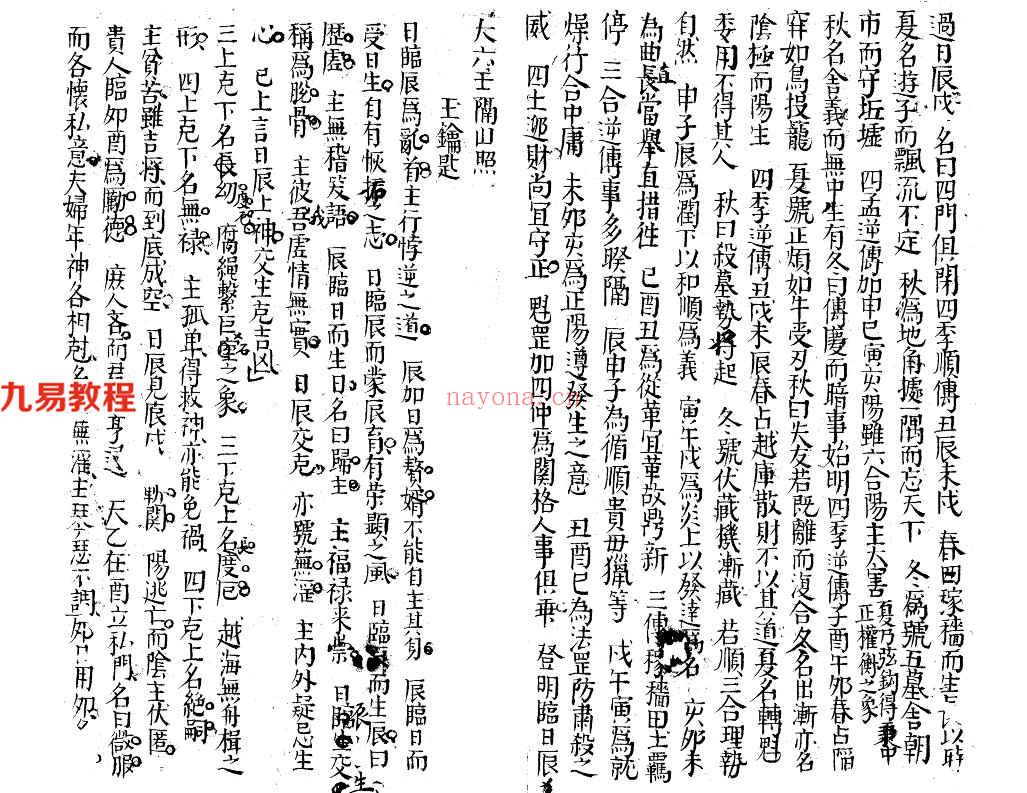 過日辰戌 名曰四門俱閉四季順傳丑辰未戌 春田稼穡而生
夏名遊子而飄流不定 秋為地角據一隅而忘天下 冬為號五墓舍朝
市而守坵墟 四孟逆傳加申巳寅亥陽雖六合陽主大害 夏乃弦鈎得秉中正權衡之象
秋名舍義而無中生有冬曰傳慶而暗事始明四季逆傳子酉午夘春占陷
穽如鳥投籠 夏號正煩如牛受刃秋曰失友若既離而復合冬名出漸亦名
陰極而陽生 四季逆傳丑戌未辰春占越庫散財不以其道夏名轉魁
委用不得其人 秋曰殺墓勢將起 冬號伏藏機漸藏 若順三合理勢
自然 申子辰為潤下以和順為義 寅午戌為炎上以發達為名 亥夘未
為曲直長當舉直措徃 巳酉丑為從革宜革故鼎新 三傳稼穡田土羈
停 三合逆傳事多暌隔 辰申子為循順貴毋獵等 戌午寅為就
燥行合中庸 未夘亥為正陽遵發生之意 丑酉巳為法罡防肅殺之
威 四土逆財尚宜守正 魁罡加四仲為關格人事俱乖 登明臨日辰
大六壬隔山照
玉鑰匙
日臨辰為亂首主行悖逆之道 辰加日為贅婿不能自主其身 辰臨日而
受日生自有恢振之志 日臨辰而蒙辰育有榮顯之風 日臨辰而生辰曰
歷虛 主無稽發語 辰臨日而生日名曰歸主 主福禄来崇
稱為脫骨 主彼吾虛情無實 日辰交克 亦號蕪滛 主内外疑忌生
心 已上言日辰上神交生克吉凶
三上克下名長幼 三下克上名度厄 越海無舟楫之
形 四上克下名無禄 主孤單得救神亦能免禍 四下克上名絶嗣
主貧苦雖吉將而到底成空 日辰見辰戌 勒關 陽逃亡而陰主伏匿
貴人臨夘酉為勵德 庶人吝而君亨 天乙在酉立私門名曰微服
而各懷私意夫婦年神各相尅名蕪滛主琴瑟不調
九易教程
nayona.cn